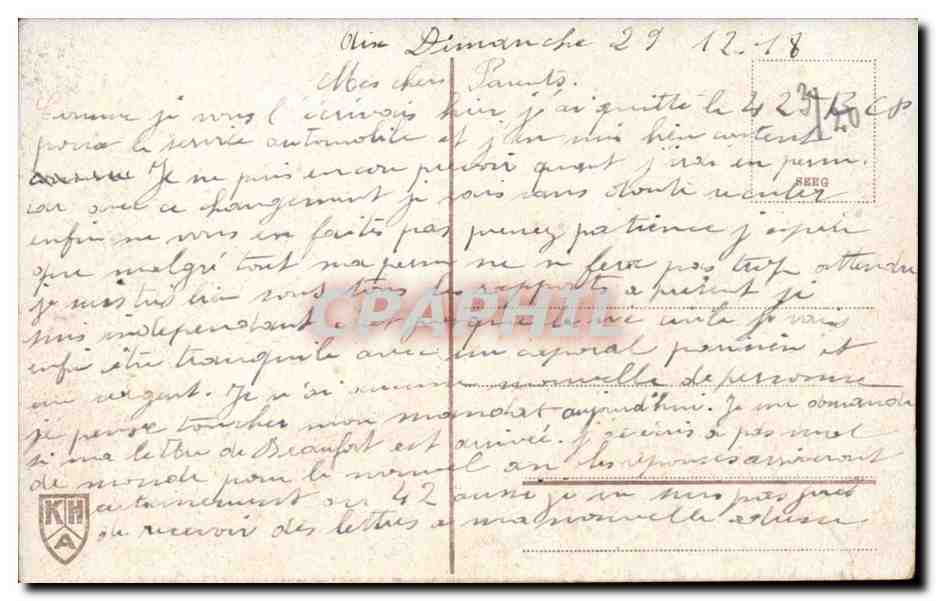 Aix Dimanche 29 12.18
Mes chers Parents.
Comme je vous l'écrivais hier j'ai quitté le 42 3 B CP
pour le service automobile et j'en suis bien content
Je ne puis encore prevoir quant j'irai en perm.
car avec ce changement je vais sans doute reculer
SEEG
enfin ne vous en faites pas prenez patience j'espère
que malgré tout ma perm ne se fera pas trop attendre
je suis très bien sous tous les rapports a présent je
suis independant c'est presque la vie civile je vais
enfin être tranquile avec un caporal parisien et
un sergent. Je n'ai aucune nouvelle de personne
je pense toucher mon mandat aujourd'hui. Je me demande
si ma lettre de Beaufort est arrivée. J'écris a pas mal
de monde pour le nouvel an les réponses arriveront
certainement au 42 aussi je ne suis pas près
de recevoir des lettres a ma nouvelle adresse
KH
A
CPAPHIL